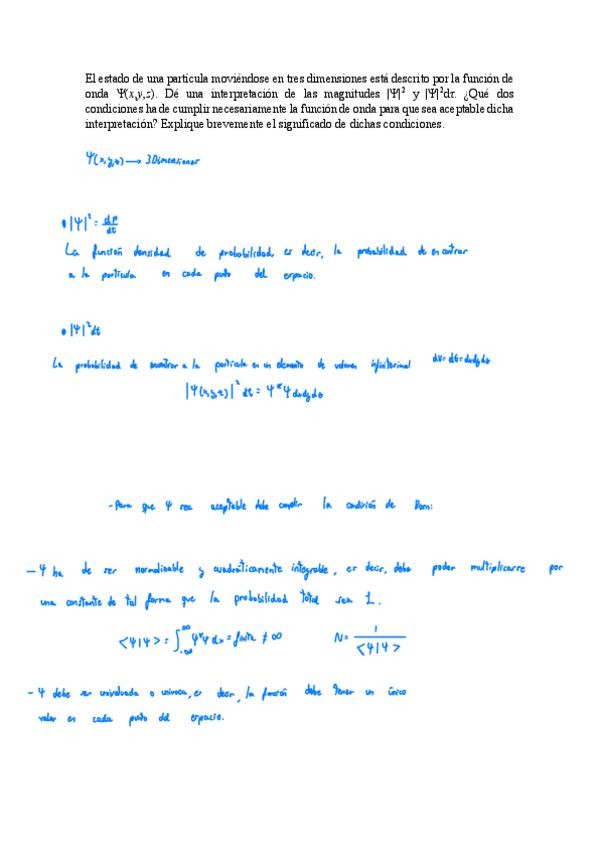 El estado de una partícula moviéndose en tres dimensiones está descrito por la función de
onda Ψ(x,y,z). Dé una interpretación de las magnitudes |Ψ|² y |Ψ|²dτ. ¿Qué dos
condiciones ha de cumplir necesariamente la función de onda para que sea aceptable dicha
interpretación? Explique brevemente el significado de dichas condiciones.
Ψ(x,y,z) → 3 Dimensiones
• |Ψ|² = dP/dτ
La función densidad de probabilidad, es decir, la probabilidad de encontrar
a la partícula en cada punto del espacio.
• |Ψ|² dτ
La probabilidad de encontrar a la partícula en un elemento de volumen infinitesimal dV = dτ = dxdydz
|Ψ(x,y,z)|² dτ = Ψ* Ψ dxdydz
- Para que Ψ sea aceptable debe cumplir la condición de Born:
- Ψ ha de ser normalizable y cuadráticamente integrable, es decir, debe poder multiplicarse por
una constante de tal forma que la probabilidad total sea 1.
<Ψ|Ψ> = ∫_{-∞}^{∞} Ψ*Ψ dx = finita ≠ ∞ N = 1/<Ψ|Ψ>
- Ψ debe ser univaluada o unívoca, es decir, la función debe tener un único
valor en cada punto del espacio.